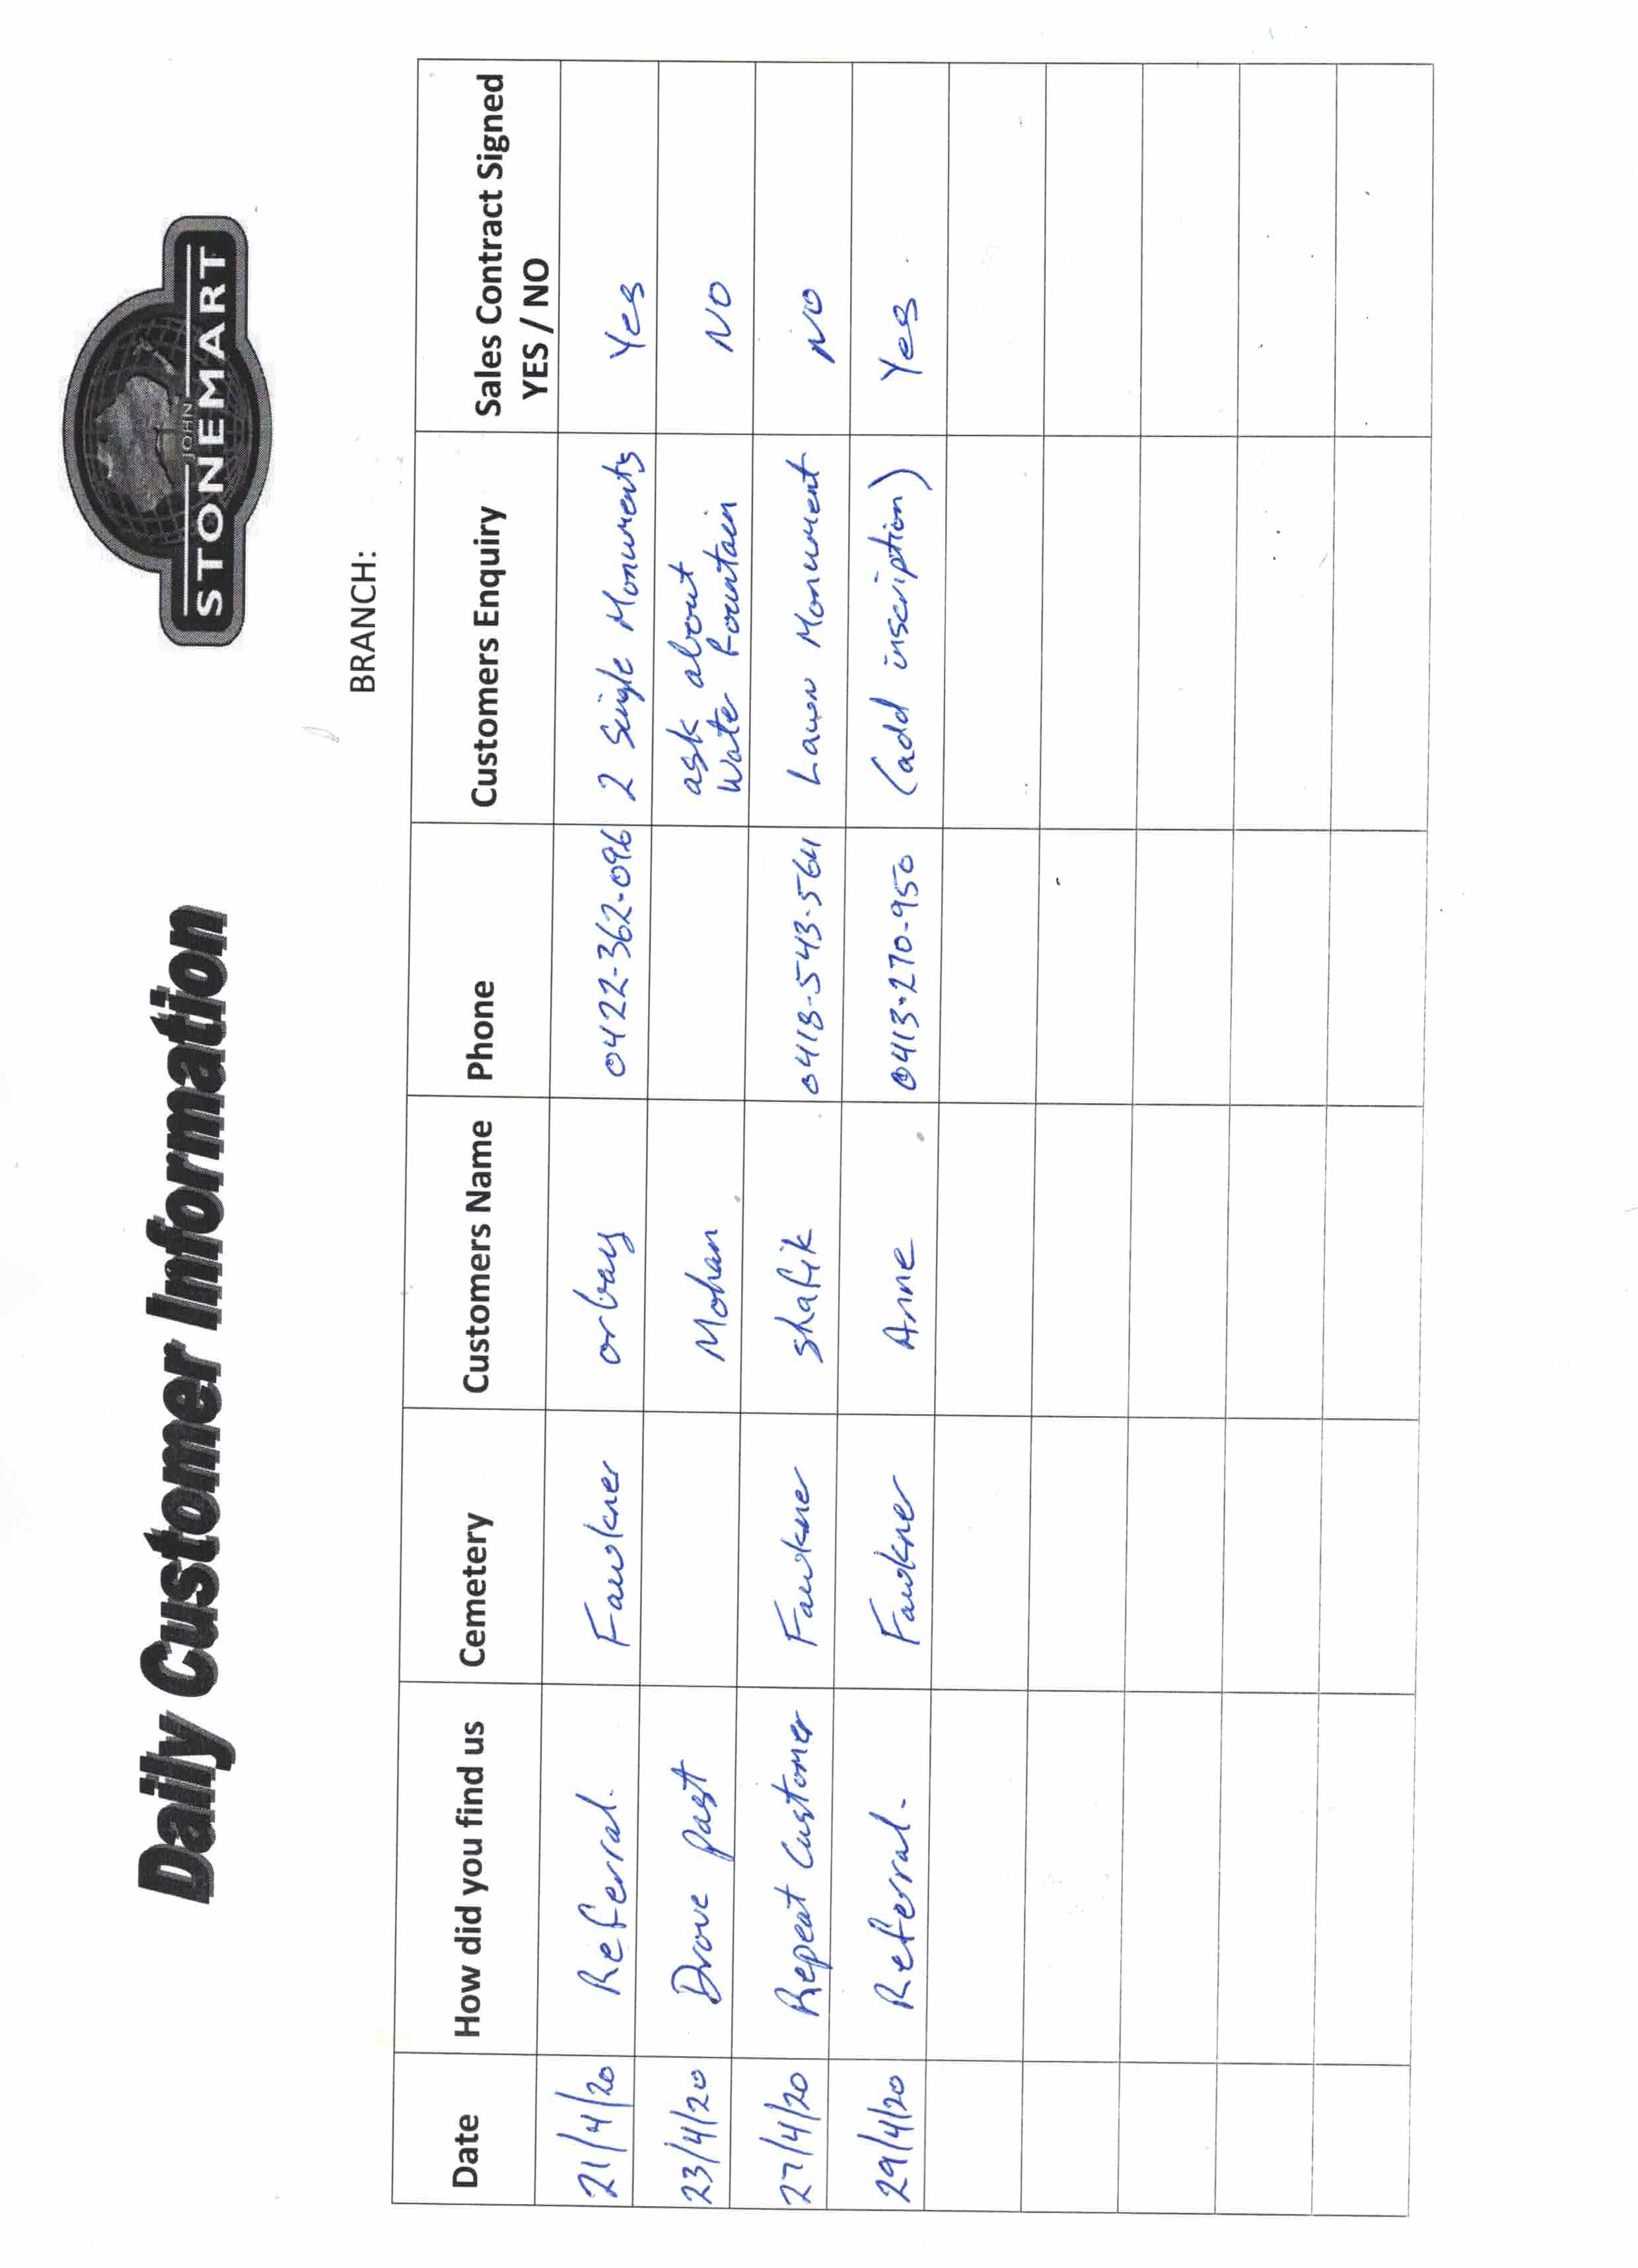 Daily Customer Information
JOHN
STONEMART
BRANCH:
Date How did you find us Cemetery Customers Name Phone Customers Enquiry Sales Contract Signed
YES / NO
21/4/20 Referral. Fawkner orbay 0422-362-096 2 Single Monuments Yes
23/4/20 Drove past Mohan ask about
Water Fountain NO
27/4/20 Repeat Customer Fawkner shafik 0418-543-564 Lawn Monument NO
29/4/20 Referral- Fawkner Anne 0413-270-950 (add inscription) Yes.